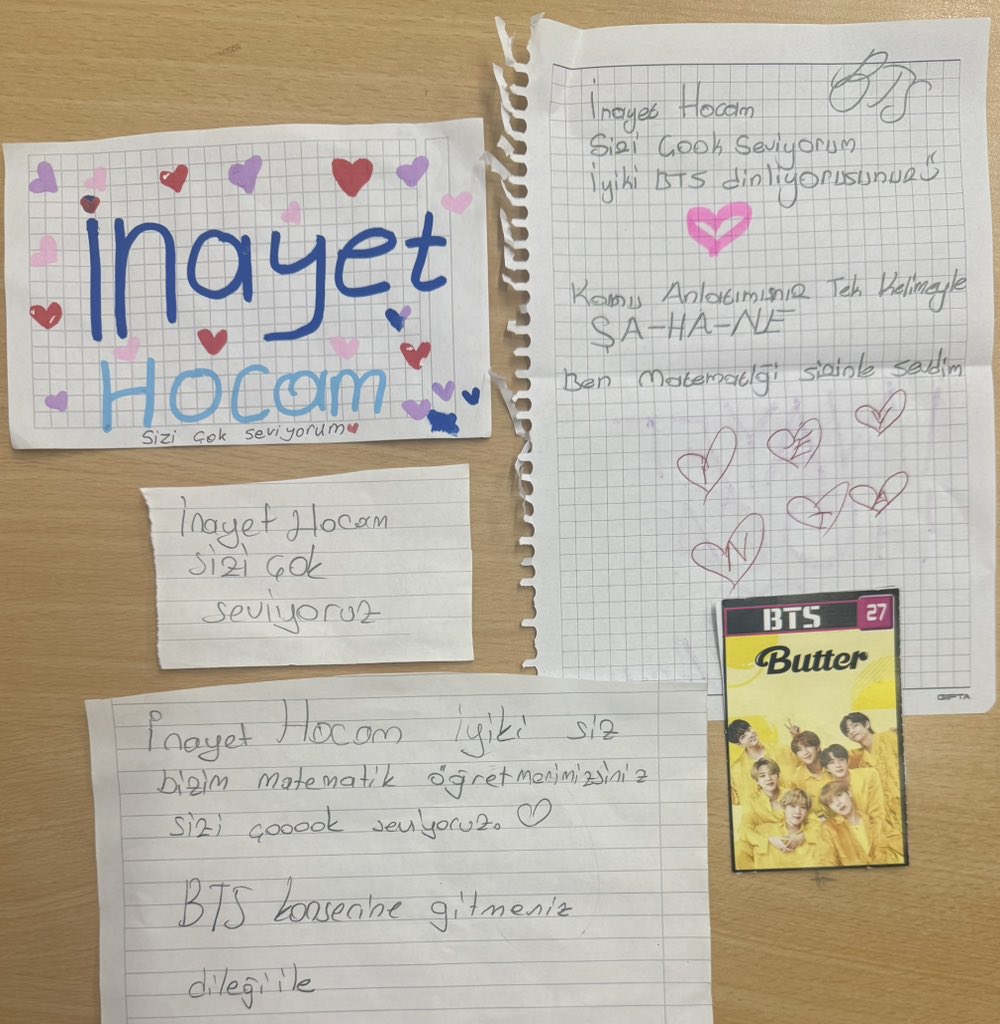 inayet
Hocam
Sizi çok seviyorum
İnayet Hocam
sizi çok
seviyoruz
İnayet Hocam iyiki siz
bizim matematik öğretmenimizsiniz
sizi çooook seviyoruz.
BTS konserine gitmeniz
dileği ile
BTS
İnayet Hocam
Sizi Çook Seviyorum
İyiki BTS dinliyorusunuz
Konu Anlatımınız Tek Kelimeyle
ŞA-HA-NE
Ben Matematiği sizinle sevdim
İ E Y
T A
N
GIPTA
BTS 27
Butter